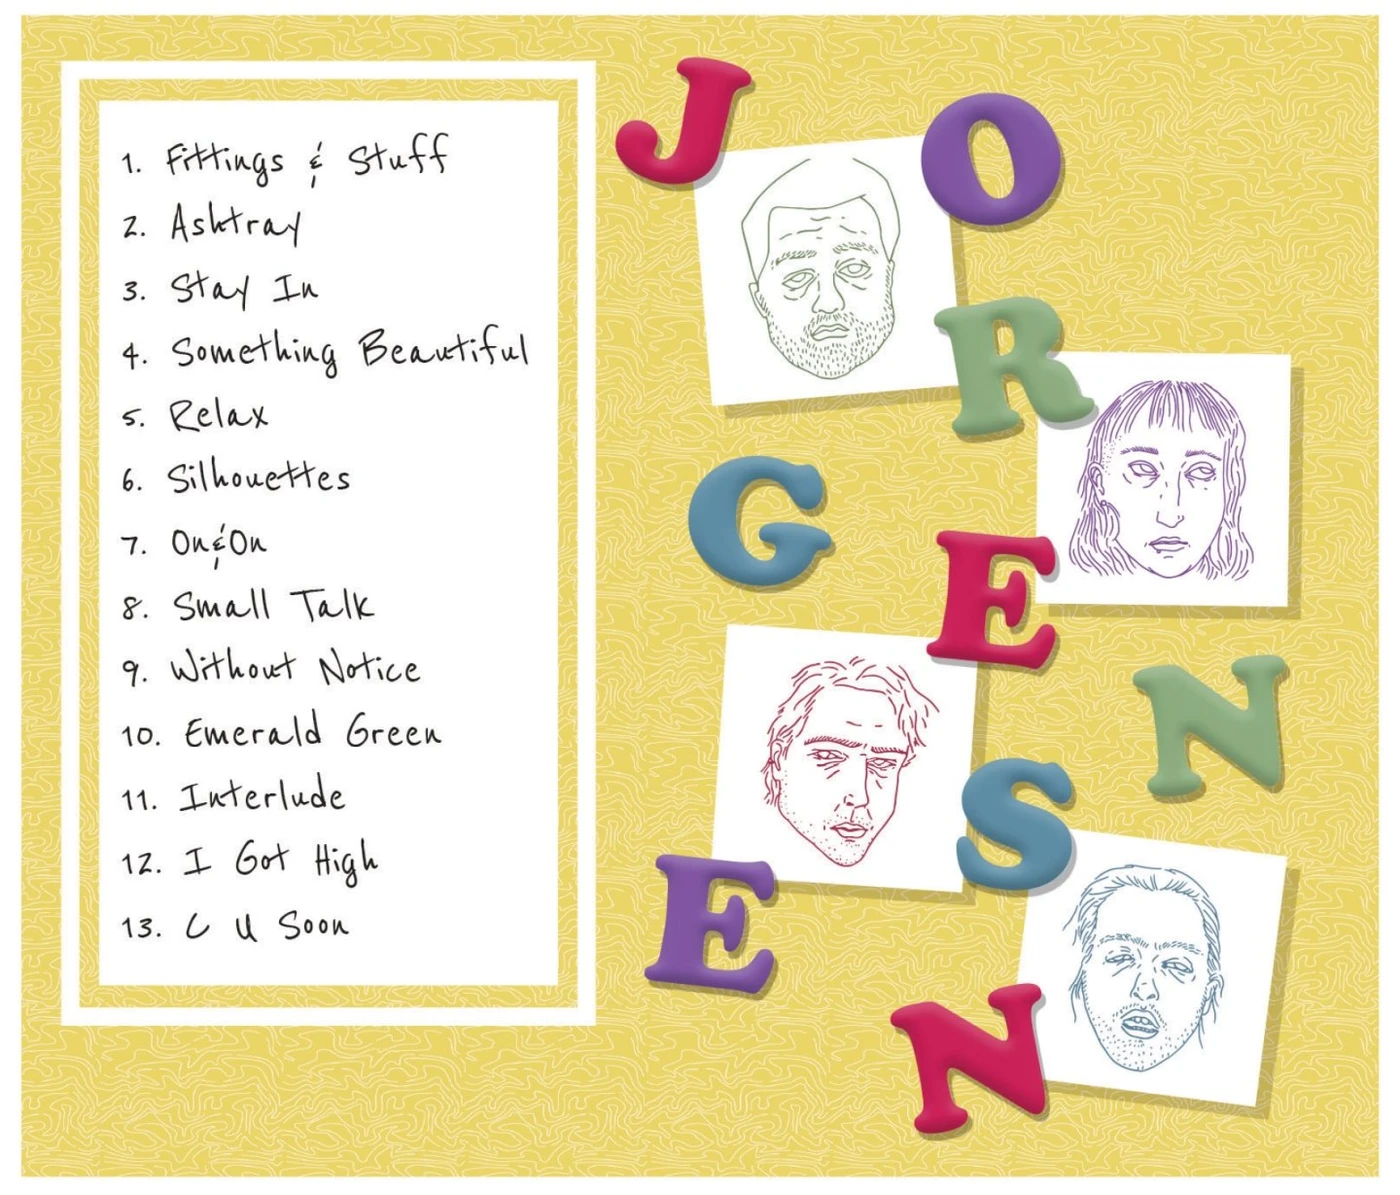 1. Fittings & Stuff
2. Ashtray
3. Stay In
4. Something Beautiful
5. Relax
6. Silhouettes
7. On&On
8. Small Talk
9. Without Notice
10. Emerald Green
11. Interlude
12. I Got High
13. C U Soon
JORGENSEN